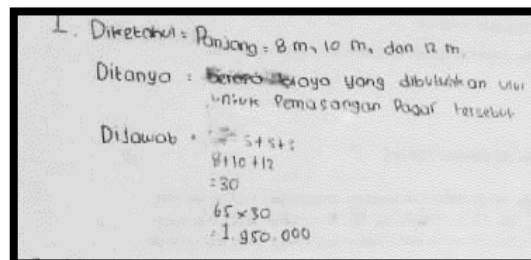 1. Diketahui = Panjang = 8 m, 10 m, dan 12 m.
Ditanya : biaya yang dibutuhkan
untuk Pemasangan Pagar tersebut
Dijawab : s+s+s
8+10+12
=30
65 x 30
=1.950.000